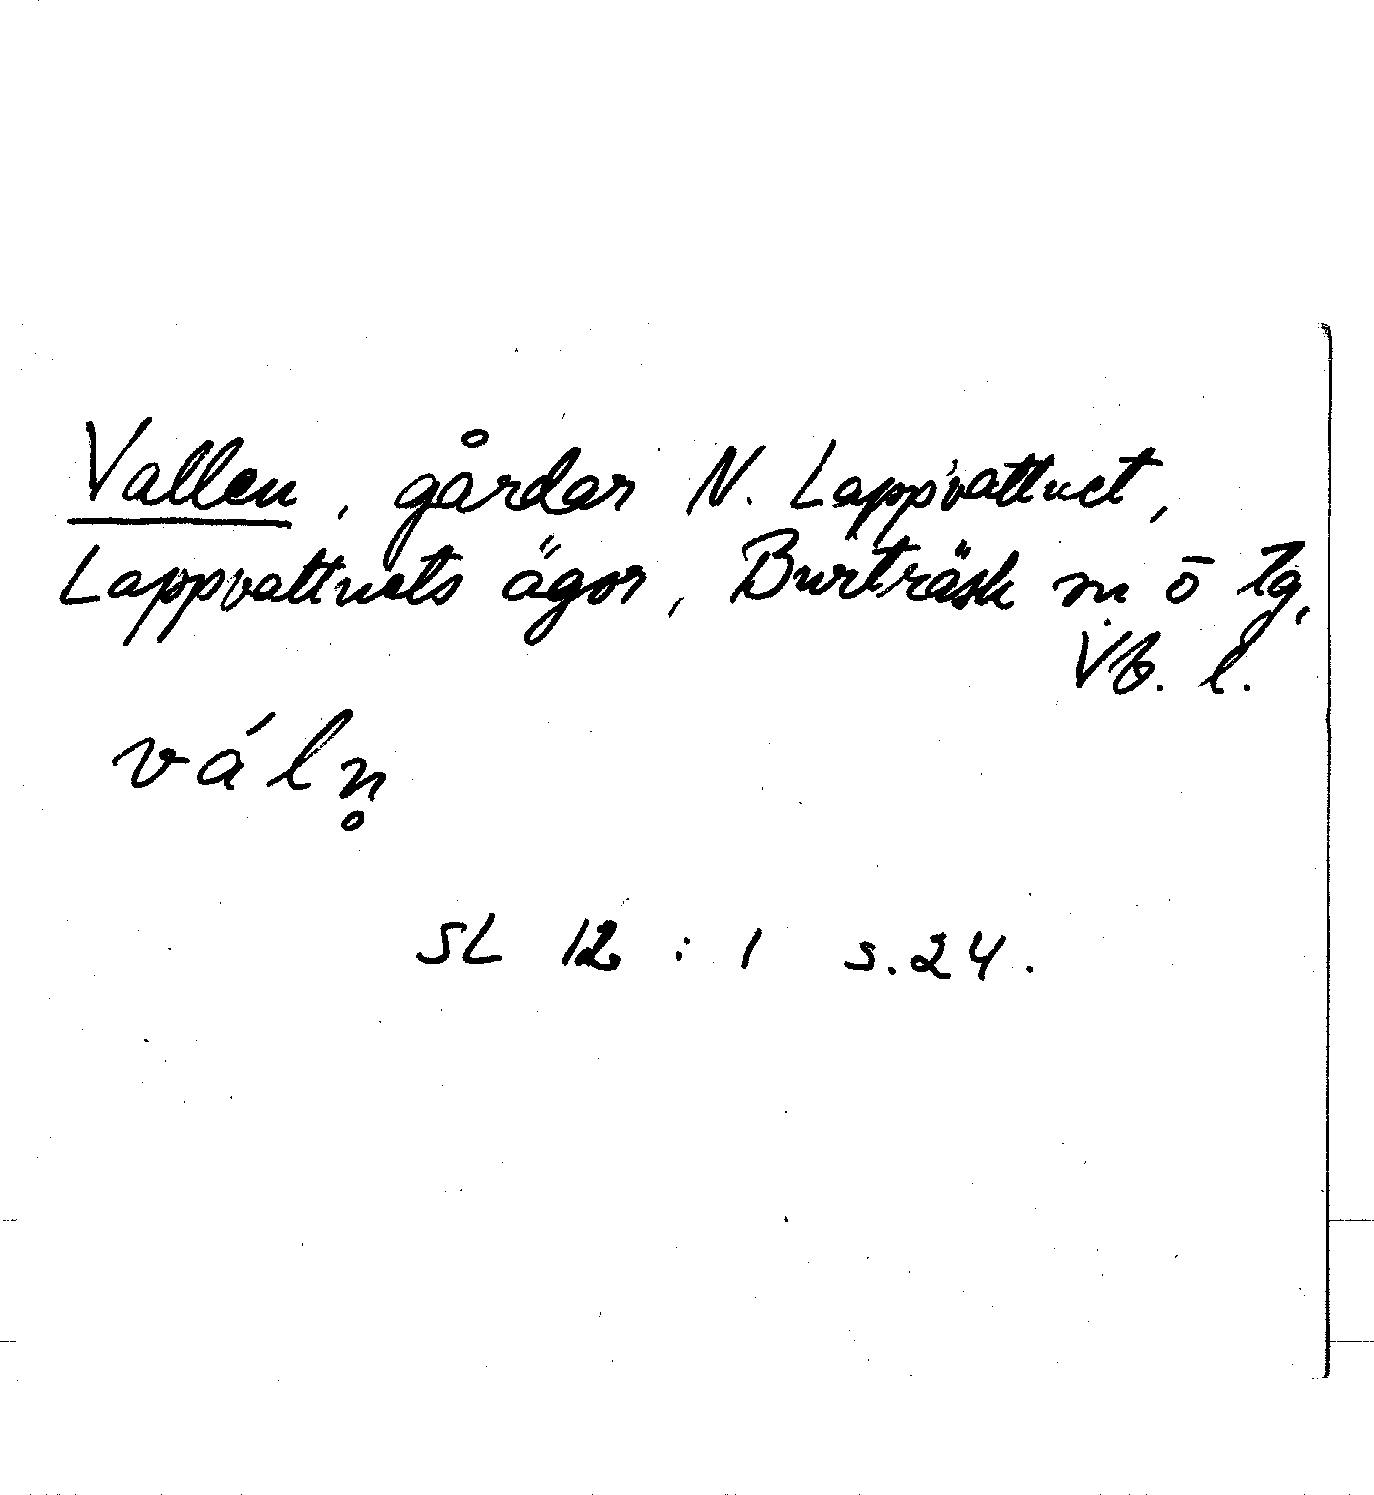 Vallen, gårdar N. Lappvattnet,
Lappvattnets ägor, Burträsk sn ö tg,
Vb. l.
váln̥
SL 12 : 1 s. 24.